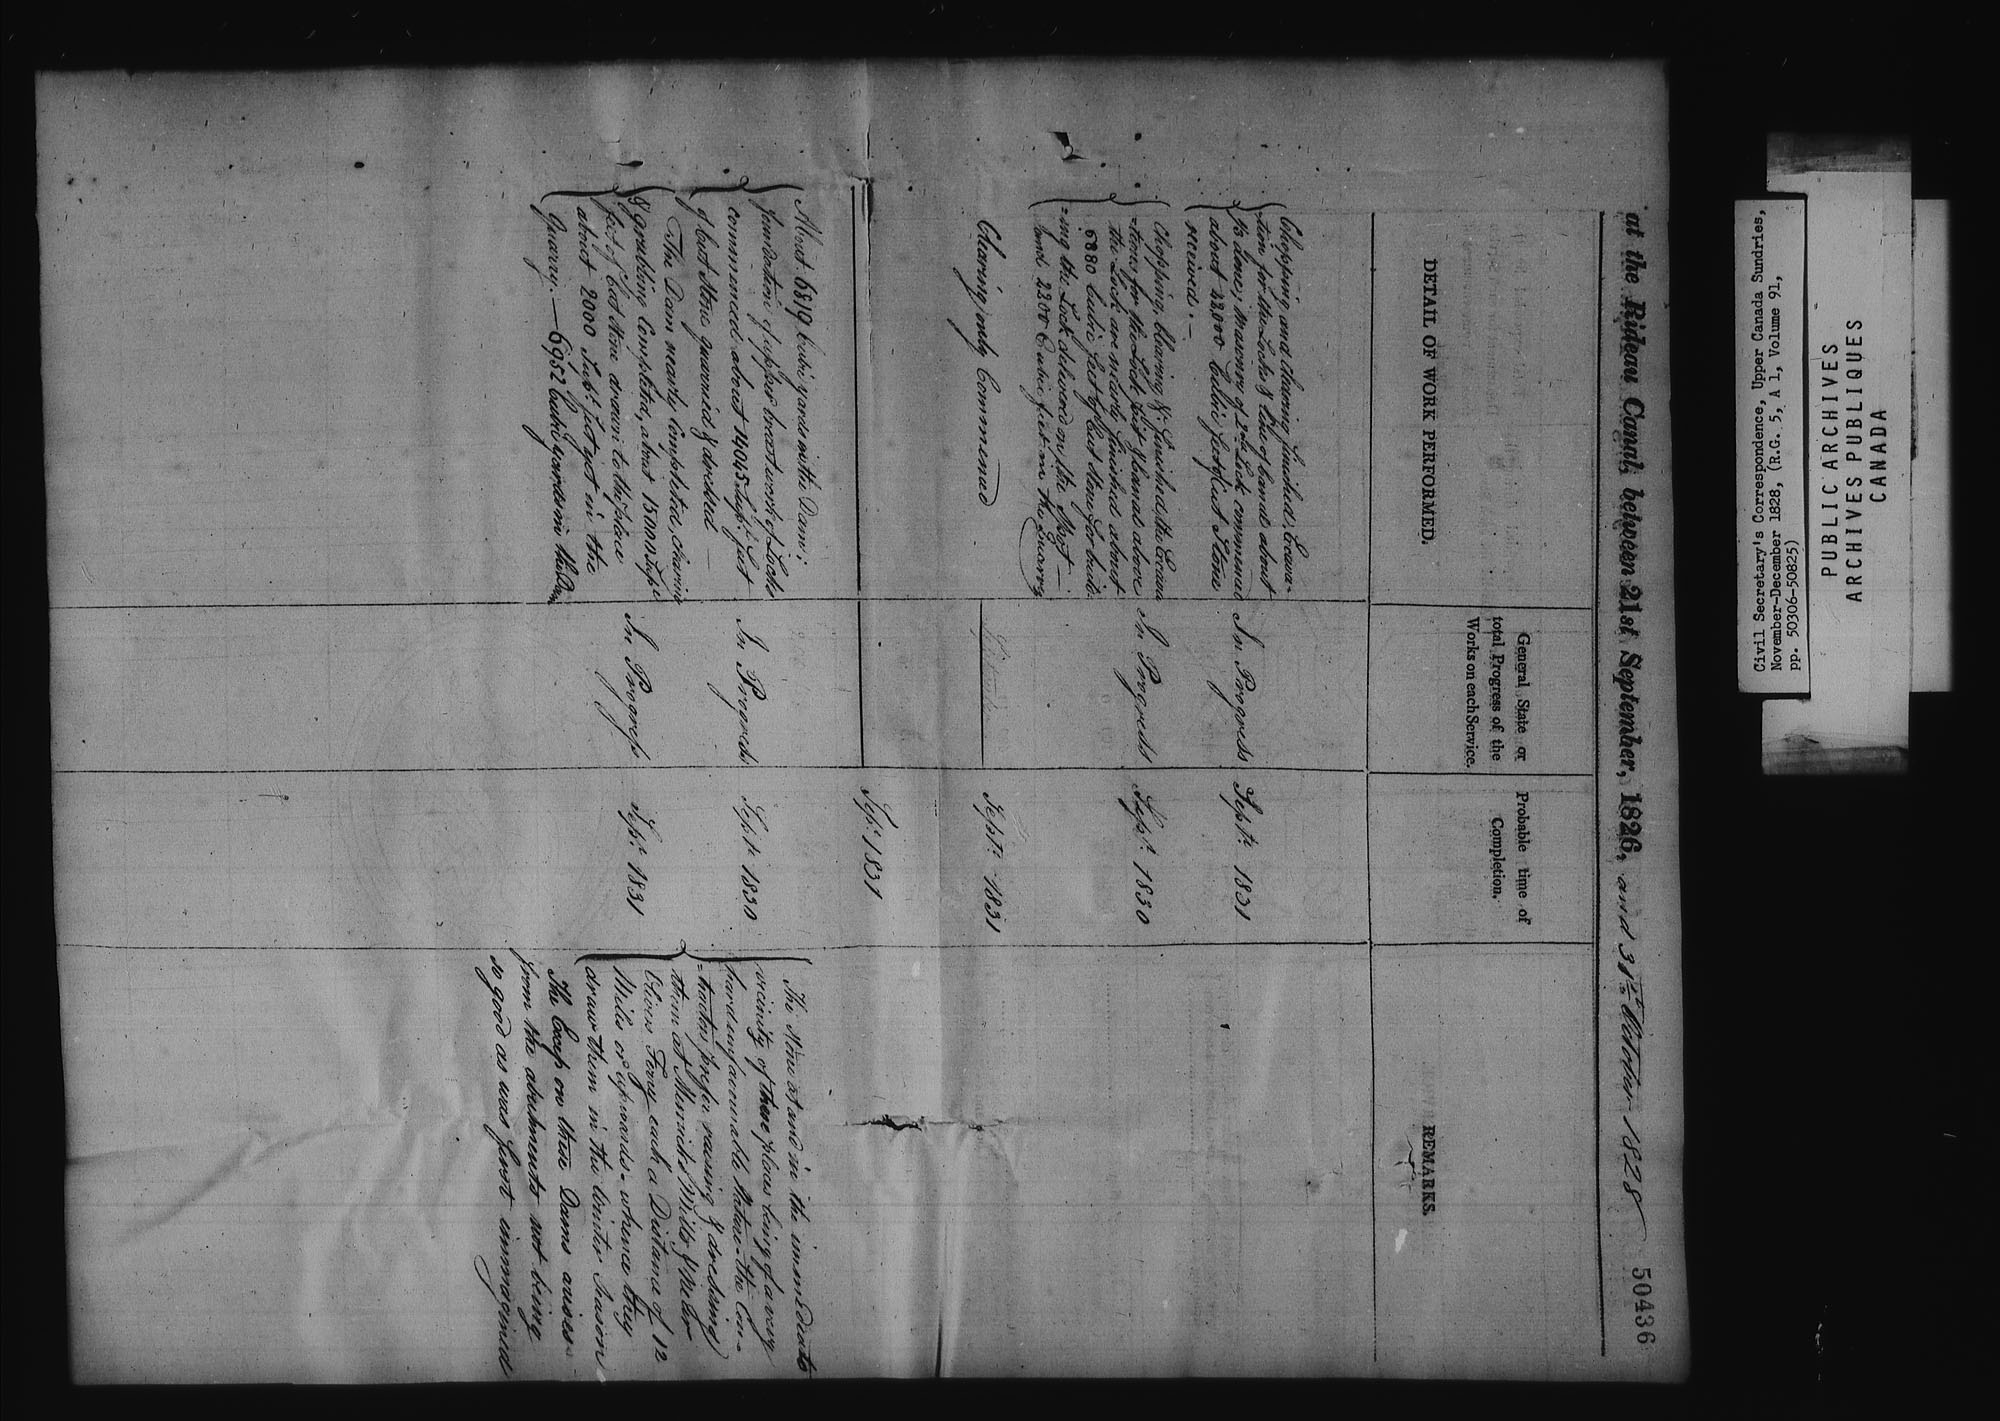 at the Rideau Canal, between 21st September, 1826, and 31st October 1828
50436
DETAIL OF WORK PERFORMED.
General State or
total Progress of the
Works on each Service.
Probable time of
Completion.
REMARKS.
Chopping and clearing finished; Excava-
tion for the Locks & line of Canal about
done; Masonry of 2nd Lock commenced
about 22,000 Cubic feet of Cut Stone
received. —
In Progress
Septr. 1831
Chopping, clearing & finished, the Excava
-tions for the Lock pit & Canal above
the Lock are nearly finished about
6880 Cubic feet of Cut Stone for build-
-ing the Lock delivered on the Spot —
and 2200 Cubic feet in the Quarry
In Progress
Sept. 1830
Clearing only Commenced
Septr. 1831
Sep. 1831
About 6819 Cubic yards in the Dam;
foundation of upper breastwork of Locks
commenced about 14045 Supl. feet
of Cut Stone quarried & dressed —
In Progress
Septr. 1830
The Dam nearly Completed, clearing
& grubbing Completed, about 15000 Supl.
feet of Cut Stone drawn to the place
about 2000 Supl. feet yet in the
Quarry. — 6952 Cubic yards in the Dam
In Progress
Sepr. 1831
The Stone at and in the immediate
vicinity of these places being of a very
hard unfavourable Nature — the Con-
-tractors prefer raising & dressing
them at Merrick's Mills &
Olivers Ferry each a Distance of 12
Miles or upwards — whence they
draw them in the Winter Season
The Excess on these Dams arises
from the abutments not being
so good as was first immagined
Civil Secretary's Correspondence, Upper Canada Sundries,
November-December 1828, (R.G. 5, A 1, Volume 91,
pp. 50306-50825)
PUBLIC ARCHIVES
ARCHIVES PUBLIQUES
CANADA